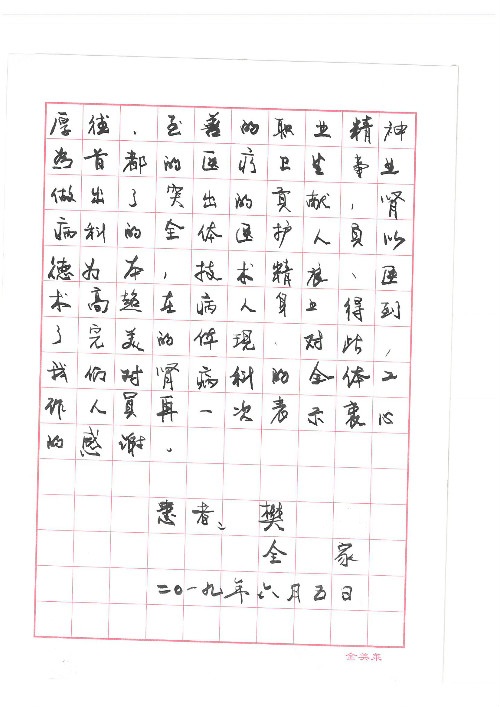 厚德、至善的职业精神
为首都的医疗卫生事业
做出了突出的贡献，肾
病科的全体医护人员以
德为本，技术精良、医
术高超在病人身上得到
了完美的体现．对此，
我们对肾病科的全体工
作人员再一次表示衷心
的感谢。
患者：樊
全 家
二〇一九年六月五日